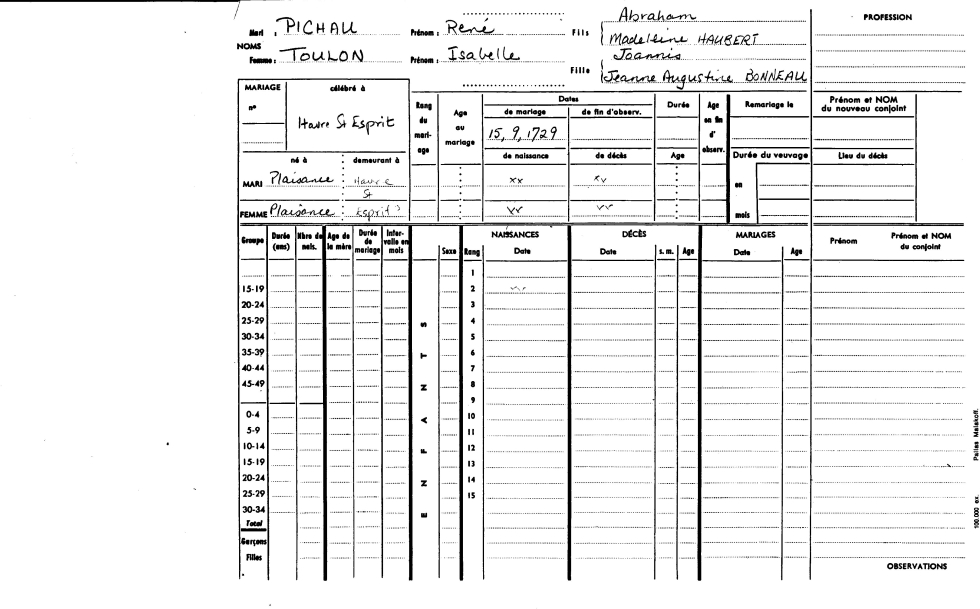 Mari : PICHAU Prénom : René Fils Abraham
Madeleine HAUBERT
NOMS
Femme : TOULON Prénom : Isabelle Fille Joannis
Jeanne Augustine BONNEAU
PROFESSION
MARIAGE célébré à
n°
Havre St Esprit
Rang du mari-age
Age au mariage
Dates
de mariage de fin d'observ.
15, 9, 1729
de naissance de décès
Durée
Age
Age en fin d' observ.
Remariage le
Prénom et NOM du nouveau conjoint
Durée du veuvage
Lieu du décès
en
mois
né à demeurant à
MARI Plaisance Havre xx xv
St
FEMME Plaisance Esprit ?
Groupe Durée (ans) Nbre de nais. Age de la mère Durée de mariage Inter-valle en mois Sexe Rang NAISSANCES Date DÉCÈS Date s. m. Age MARIAGES Date Age Prénom Prénom et NOM du conjoint
ENFANTS
1
15-19 2
20-24 3
25-29 4
30-34 5
35-39 6
40-44 7
45-49 8
9
0-4 10
5-9 11
10-14 12
15-19 13
20-24 14
25-29 15
30-34
Total
Garçons
Filles
OBSERVATIONS
100.000 ex. Pallas Malakoff.